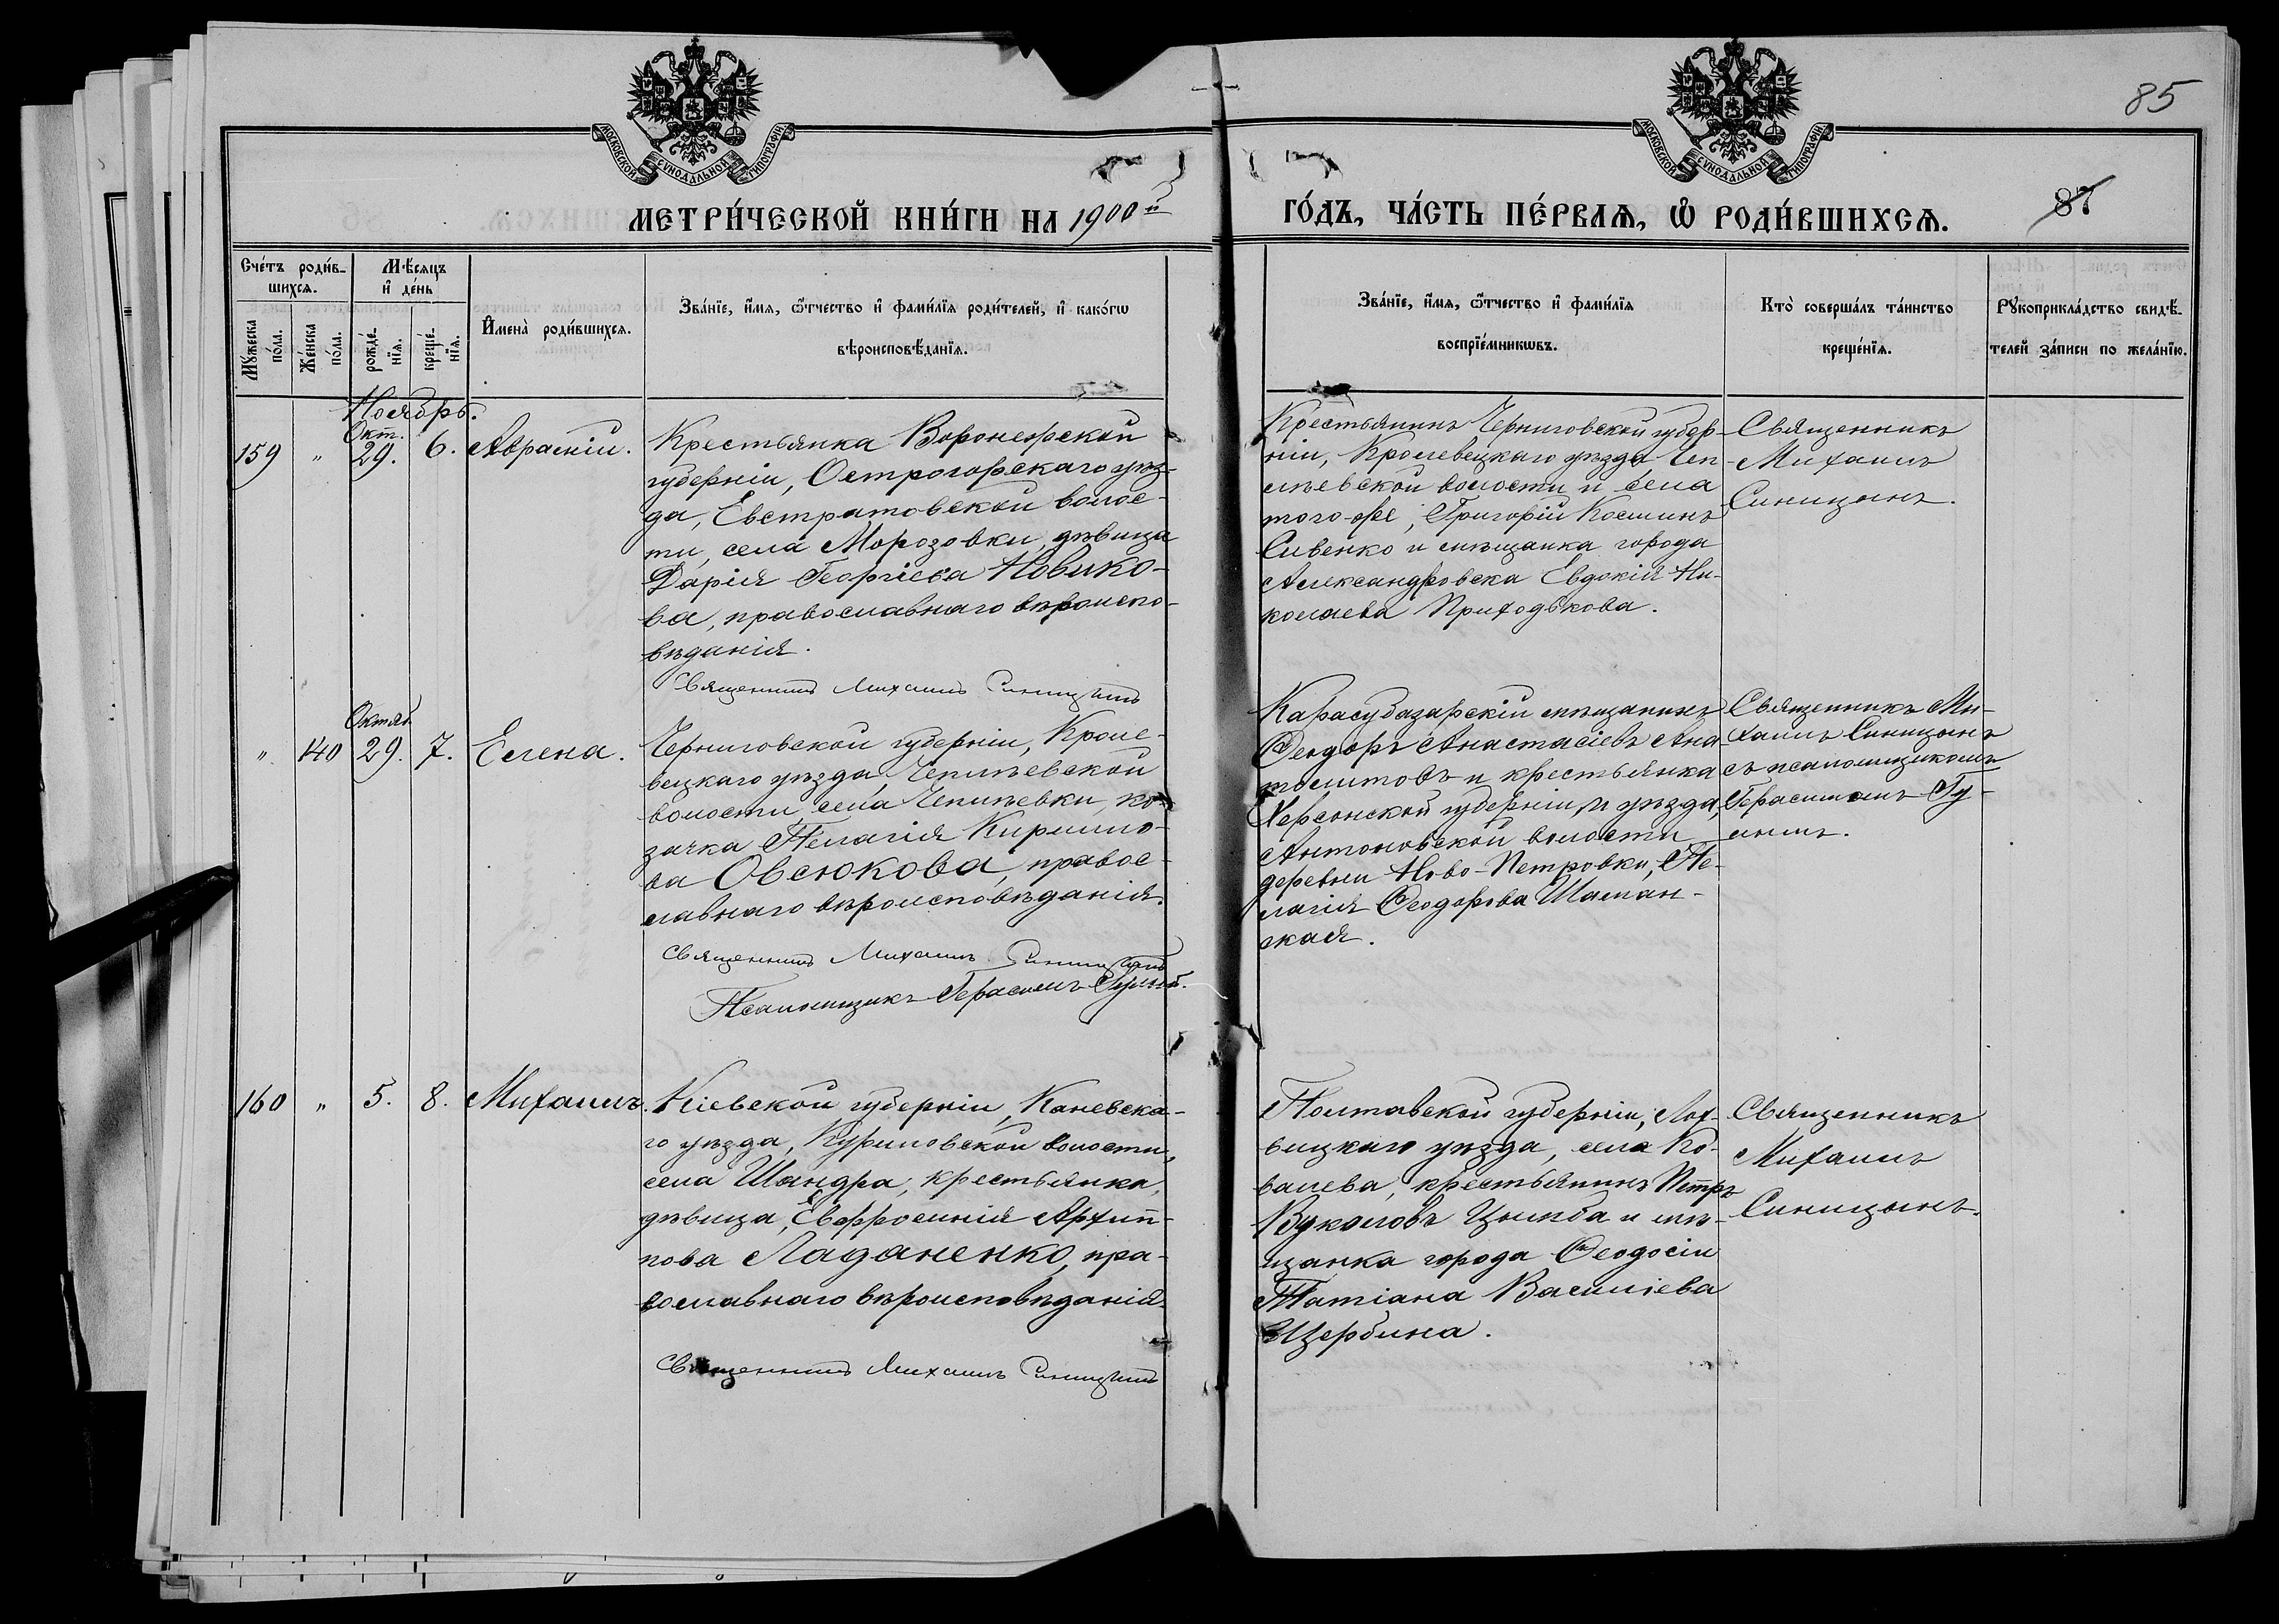 85
МОСКОВСКОЙ СѴНОДАЛЬНОЙ ТИПОГРАФІИ
МОСКОВСКОЙ СѴНОДАЛЬНОЙ ТИПОГРАФІИ
МЕТРИ́ЧЕСКОЙ КНИ́ГИ НА 1900й
ГО́ДЪ, ЧА́СТЬ ПЕ́РВАѦ, Ѡ РОДИ́ВШИХСѦ.
87
Сче́тъ роди́в-
шихсѧ.
Мѣ́сѧцъ
и де́нь
Мꙋ́жеска
по́ла.
Же́нска
по́ла.
рожде́-
нїѧ.
креще́-
нїѧ.
Имена̀ роди́вшихсѧ.
Зва́нїе, и́мѧ, ѻ́тчество и фами́лїѧ роди́телей, и како́гѡ
вѣроисповѣ́данїѧ.
Зва́нїе, и́мѧ, ѻ́тчество и фами́лїѧ
воспрїе́мникѡвъ.
Кто̀ соверша́лъ та́инство
креще́нїѧ.
Рꙋкоприкла́дство свидѣ́-
телей за́писи по жела́нїю.
Ноябрь.
159 " Окт. 29. 6. Авраамій.
Крестьянка Воронежской
губерніи, Острогожскаго уѣз-
да, Евстратовской волос-
ти, села Морозовки, дѣвица
Дарія Георгіева Новико-
ва, православнаго вѣроиспо-
вѣданія.
Священникъ Михаилъ Синицынъ
Крестьянинъ Черниговской губер-
ніи, Кролевецкаго уѣзда, Чеп-
лѣевской волости и села
того-же, Григорій Косминъ
Сивенко и мѣщанка города
Александровска Евдокія Ни-
колаева Приходькова.
Священникъ
Михаилъ
Синицынъ.
" 140 Октяб. 29. 7. Елена.
Черниговской губерніи, Кроле-
вецкаго уѣзда, Чеплѣевской
волости, села Чеплѣевки, ко-
зачка Пелагія Кирилло-
ва Овсюкова, правос-
лавнаго вѣроисповѣданія.
Священникъ Михаилъ Синицынъ
Псаломщикъ Герасимъ Гулый.
Карасубазарскій мѣщанинъ
Ѳеодоръ Анастасіевъ Ана-
толитовъ и крестьянка
Херсонской губерніи и уѣзда,
Антоновской волости
деревни Ново-Петровки, Пе-
лагія Ѳеодорова Шаман-
ская.
Священникъ Ми-
хаилъ Синицынъ
съ псаломщикомъ
Герасимомъ Гу-
лымъ.
160 " 5. 8. Михаилъ.
Кіевской губерніи, Каневска-
го уѣзда, Куриловской волости,
села Шандра, крестьянка,
дѣвица, Евфросинія Архип-
пова Ладаненко, пра-
вославнаго вѣроисповѣданія.
Священникъ Михаилъ Синицынъ
Полтавской губерніи, Лох-
вицкаго уѣзда, села Ко-
валева, крестьянинъ Петръ
Вуколовъ Цымба и мѣ-
щанка города Ѳеодосіи
Татіана Василіева
Щербина.
Священникъ
Михаилъ
Синицынъ.